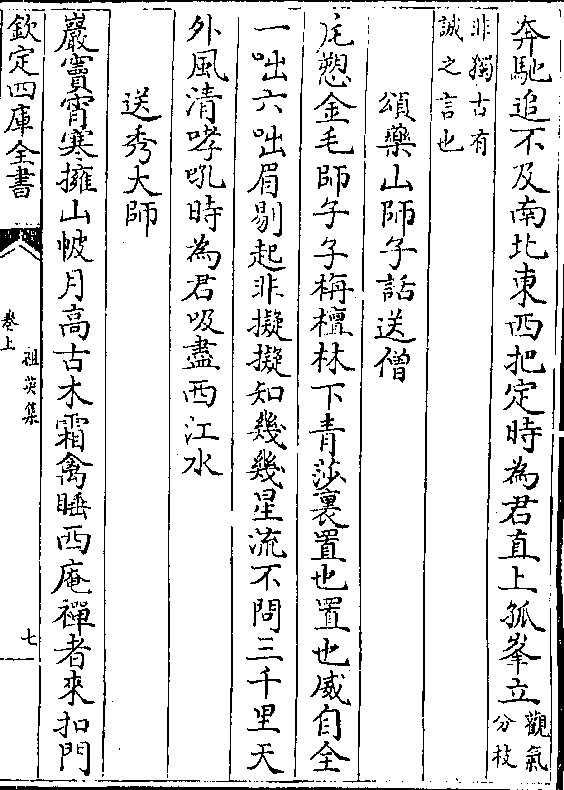 奔馳追不及南北東西把定時為君直上孤峯立觀氣分枝
非獨古有誠之言也
頌藥山師子話送僧
尨愬金毛師子子栴檀林下青莎裏置也置也威自全
一咄六咄眉剔起非擬擬知幾幾星流不問三千里天
外風清哮吼時為君吸盡西江水
送秀大師
巖竇霄寒擁山帔月高古木霜禽睡西庵禪者來扣門
欽定四庫全書
祖英集
卷上
七